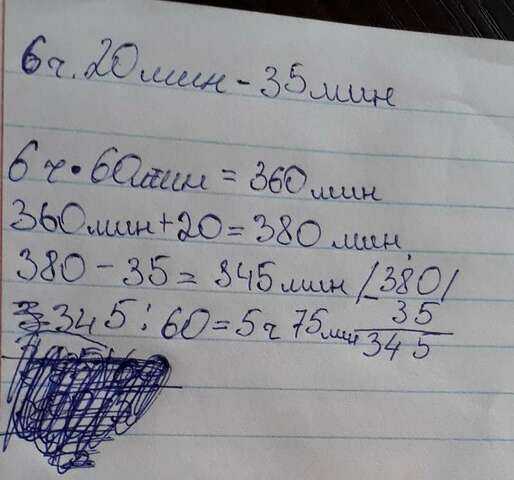 6 ч. 20 мин - 35 мин
6 ч • 60 мин = 360 мин
360 мин + 20 = 380 мин
380 - 35 = 345 мин / 380 /
35
345 : 60 = 5 ч 75 мин
345